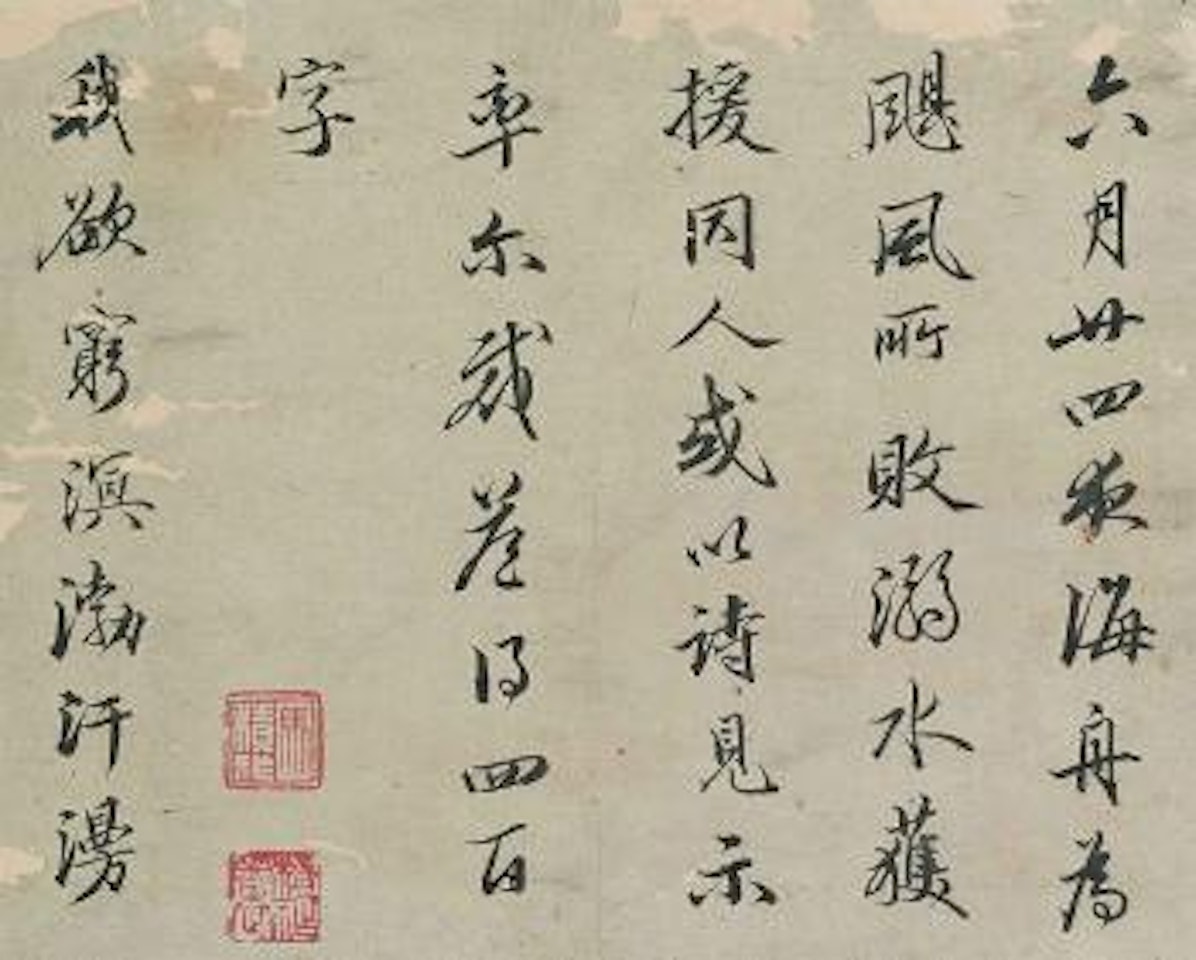 六月廿四夜海舟為
颶風所敗溺水獲
援因人或以詩見示
率尔裁答得四百
字
我欲窮溟渤汗漫